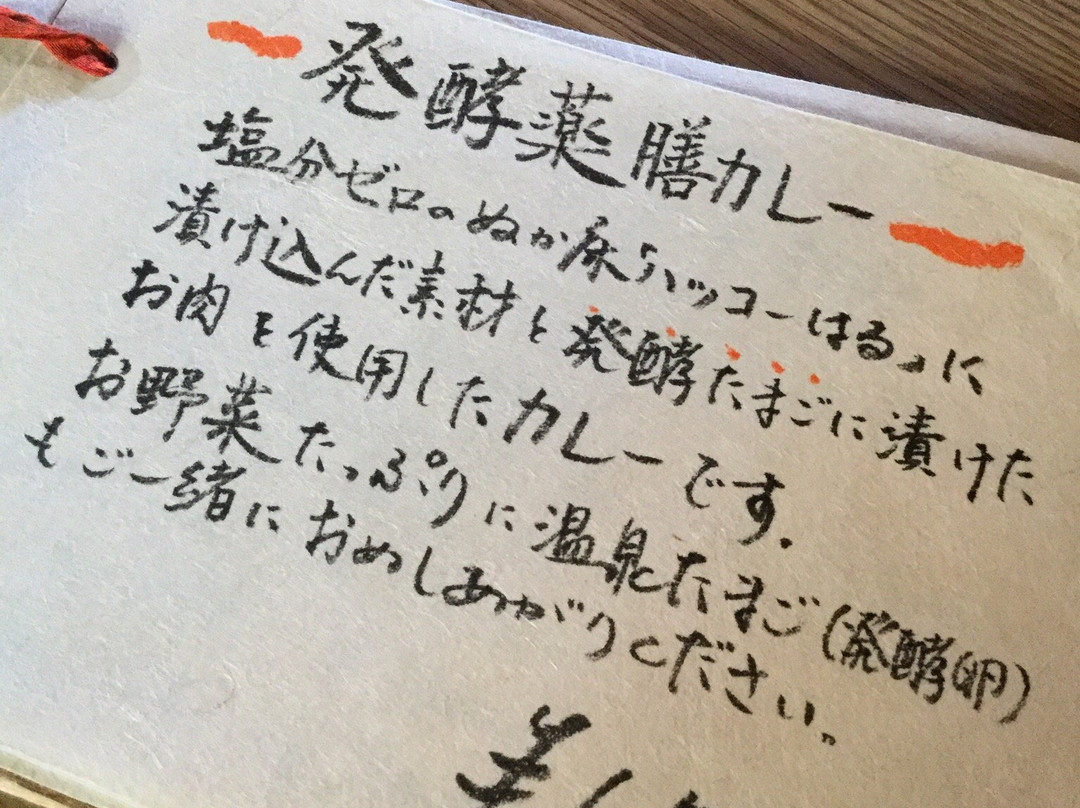 発酵薬膳カレー
塩分ゼロのぬか床「ハッコーはる」に
漬け込んだ素材と発酵たまごに漬けた
お肉を使用したカレーです.
お野菜たっぷりに温泉たまご(発酵卵)
もご一緒におめしあがりください。